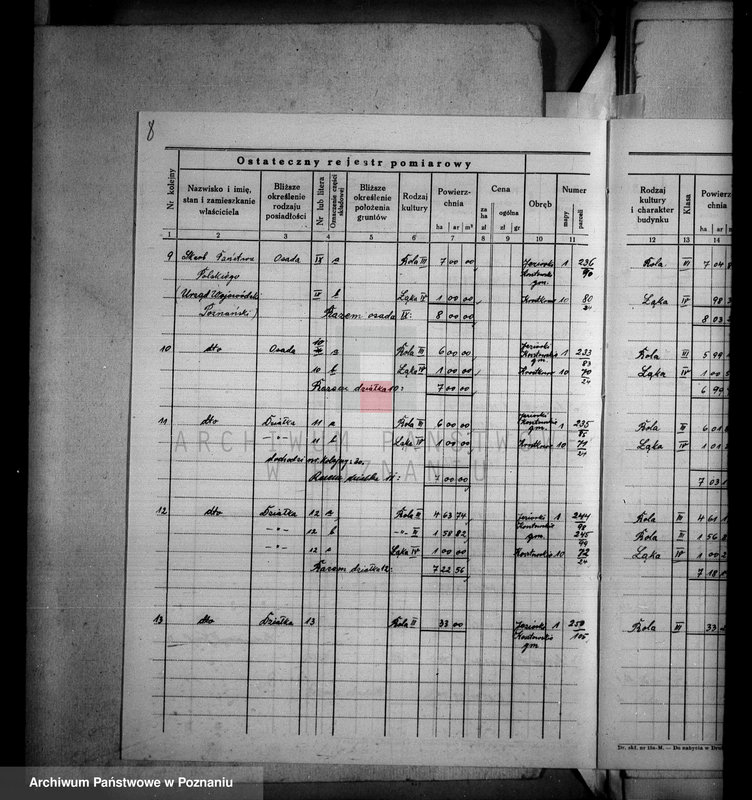 8
Ostateczny rejestr pomiarowy
Nr kolejny
Nazwisko i imię, stan i zamieszkanie właściciela
Bliższe określenie rodzaju posiadłości
Nr lub litera
Oznaczenie części składowej
Bliższe określenie położenia gruntów
Rodzaj kultury
Powierzchnia
ha ar m²
Cena
za ha
zł
ogólna
zł gr
Obręb
Numer
mapy
parceli
Rodzaj kultury i charakter budynku
Klasa
Powierz-
chni
ha ar
1 2 3 4 5 6 7 8 9 10 11 12 13 14
9 Skarb Państwa Osada IX a Rola III 7 00 00 1 236 Rola III 7 04
Polskiego 90
(Urząd Wojewódzki IX b Łąka IV 1 00 00 10 80 Łąka IV 98
Poznański) Razem osada IX: 8 00 00 8 03
10 dto Osada 10 a Rola III 6 00 00 1 233 Rola III 5 99
83
10 b Łąka IV 1 00 00 10 70 Łąka IV 1 00
24
Razem działka 10: 7 00 00 6 90
11 dto Działka 11 a Rola III 6 00 00 gm. 1 235 Rola III 6 01
-"- 11 b Łąka IV 1 00 00 10 71 Łąka IV 1 01
dochodzi nr. kolejny 30.
Razem działka 11: 7 00 00 7 03
12 dto Działka 12 a Rola II 4 63 74 1 244 Rola III 4 61
98
-"- 12 b -"- III 1 58 82 gm. 245 Rola III 1 56
-"- 12 c Łąka IV 1 00 00 10 72 Łąka IV 1 00
24
Razem działka 12: 7 22 56 7 18
13 dto Działka 13 Rola II 33 00 1 250 Rola III 33
105
gm.
Dr. skf. nr 18a-M. — Do nabycia w Dru
ARCHIWUM PAŃSTWOWE
W POZNANIU
Archiwum Państwowe w Poznaniu